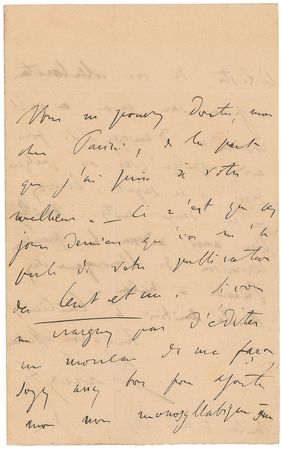 Vous ne pouvez douter, mon
cher de la part
que j'ai prise à votre
malheur. — Ce n'est que ces
jours derniers qu'on m'a
parlé de votre publication
des Cent et un. Si vous
ne craignez pas d'éditer
un morceau de ma façon
soyez assez bon pour ajouter
mon nom monosyllabique